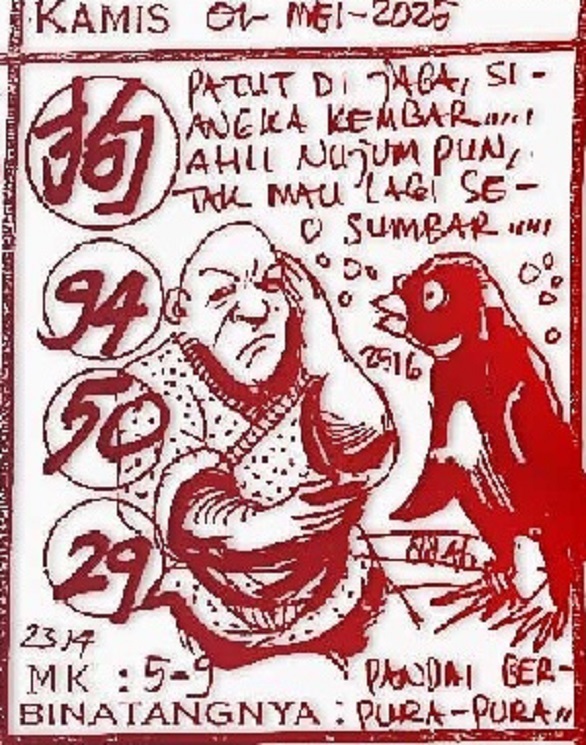 KAMIS 01- MEI-2025
PATUT DI JAGA, SI-
ANGKA KEMBAR.....
AHLI NUJUM PUN,
TAK MAU LAGI SE-
O SUMBAR.....
狗
94
2916
50
29
2314
MK : 5-9
PANDAI BER-
BINATANGNYA : PURA-PURA..